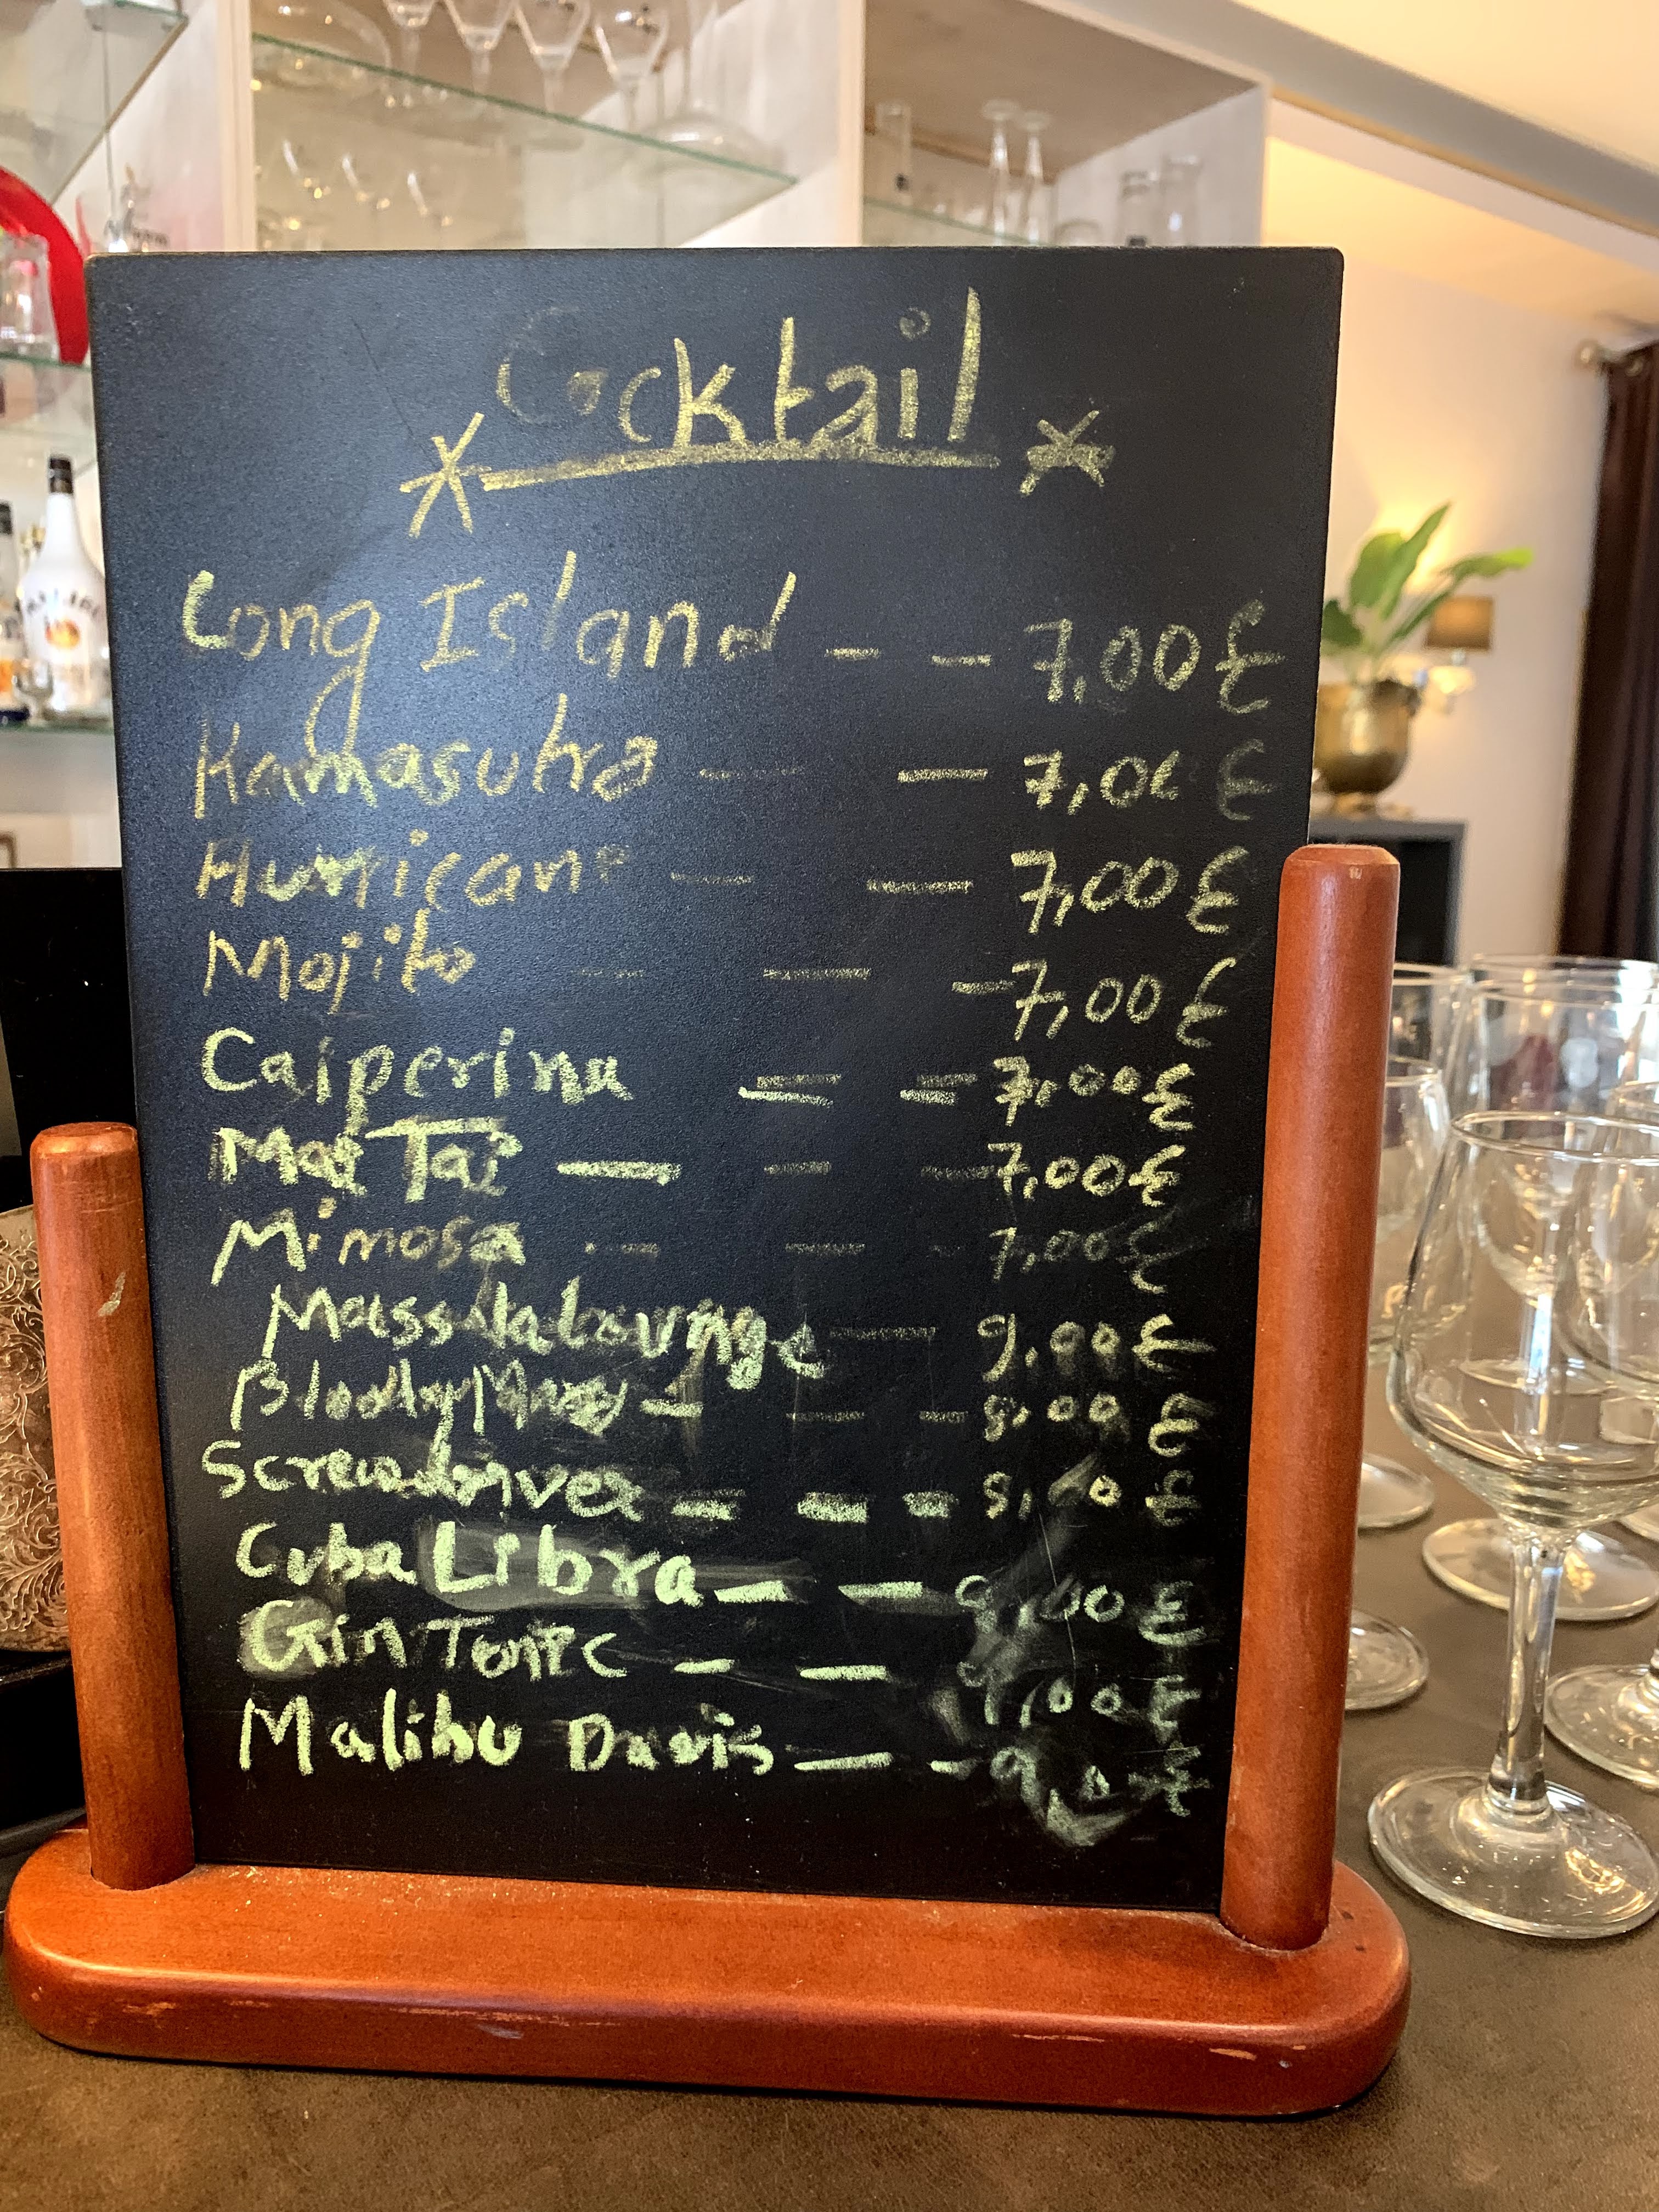 Cocktail
Long Island -- 7,00 £
Kamasutra -- 7,00 £
Hurricane -- 7,00 £
Mojito --- 7,00 £
Caiperina -- 7,00 £
Mai Tai --- 7,00 £
Mimosa --- 7,00 £
Massala Lounge - 9,00 £
Bloody Mary --- 8,00 £
Screwdriver --- 8,00 £
Cuba Libra -- 9,00 £
Gin Tonic -- 9,00 £
Malibu --